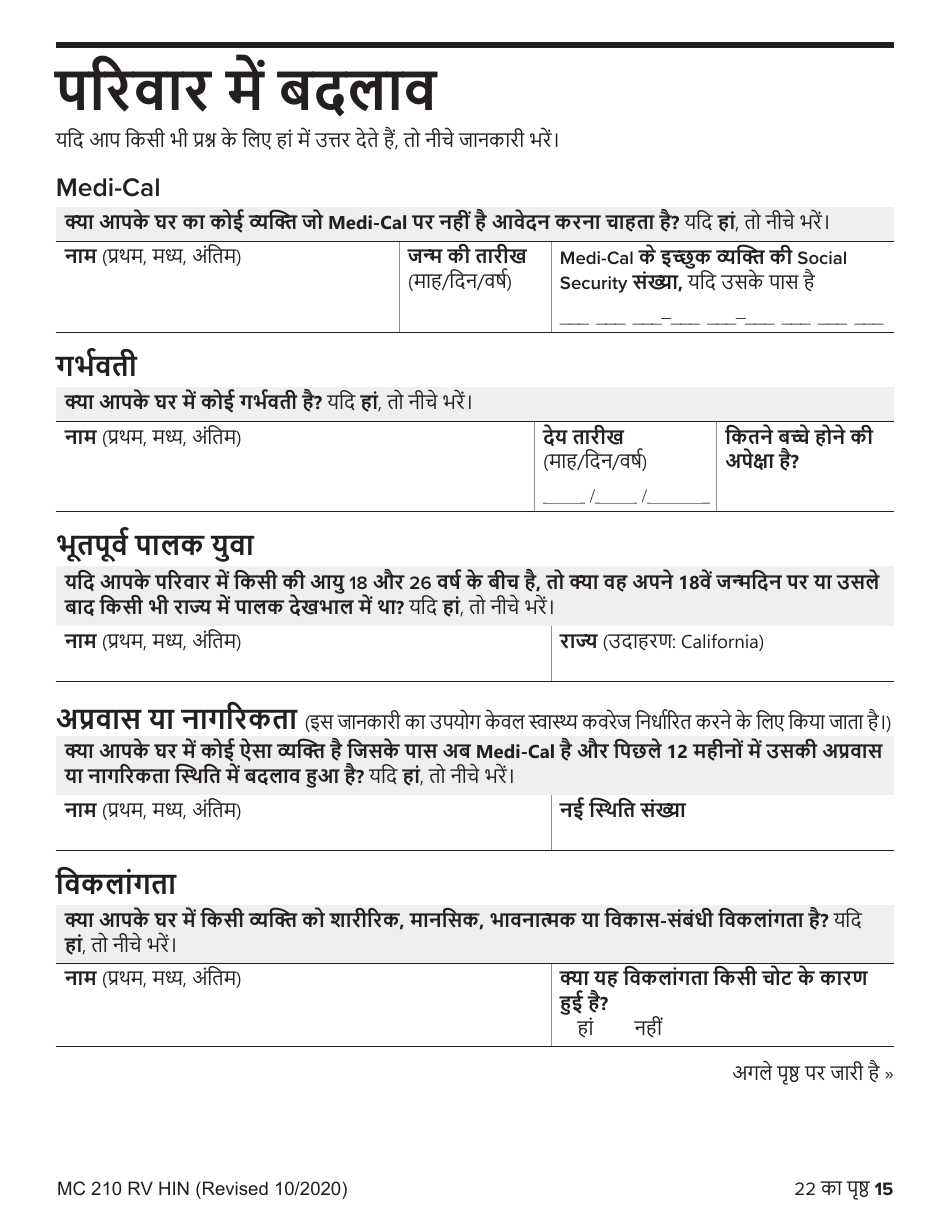 परिवार में बदलाव
यदि आप किसी भी प्रश्न के लिए हां में उत्तर देते हैं, तो नीचे जानकारी भरें।
Medi-Cal
क्या आपके घर का कोई व्यक्ति जो Medi-Cal पर नहीं है आवेदन करना चाहता है? यदि हां, तो नीचे भरें।
नाम (प्रथम, मध्य, अंतिम)
जन्म की तारीख
(माह/दिन/वर्ष)
Medi-Cal के इच्छुक व्यक्ति की Social
Security संख्या, यदि उसके पास है
___ ___ ___–___ ___–___ ___ ___ ___
गर्भवती
क्या आपके घर में कोई गर्भवती है? यदि हां, तो नीचे भरें।
नाम (प्रथम, मध्य, अंतिम)
देय तारीख
(माह/दिन/वर्ष)
____ /____ /______
कितने बच्चे होने की
अपेक्षा है?
भूतपूर्व पालक युवा
यदि आपके परिवार में किसी की आयु 18 और 26 वर्ष के बीच है, तो क्या वह अपने 18वें जन्मदिन पर या उसले
बाद किसी भी राज्य में पालक देखभाल में था? यदि हां, तो नीचे भरें।
नाम (प्रथम, मध्य, अंतिम)
राज्य (उदाहरण: California)
अप्रवास या नागरिकता (इस जानकारी का उपयोग केवल स्वास्थ्य कवरेज निर्धारित करने के लिए किया जाता है।)
क्या आपके घर में कोई ऐसा व्यक्ति है जिसके पास अब Medi-Cal है और पिछले 12 महीनों में उसकी अप्रवास
या नागरिकता स्थिति में बदलाव हुआ है? यदि हां, तो नीचे भरें।
नाम (प्रथम, मध्य, अंतिम)
नई स्थिति संख्या
विकलांगता
क्या आपके घर में किसी व्यक्ति को शारीरिक, मानसिक, भावनात्मक या विकास-संबंधी विकलांगता है? यदि
हां, तो नीचे भरें।
नाम (प्रथम, मध्य, अंतिम)
क्या यह विकलांगता किसी चोट के कारण
हुई है?
हां नहीं
अगले पृष्ठ पर जारी है »
MC 210 RV HIN (Revised 10/2020)
22 का पृष्ठ 15